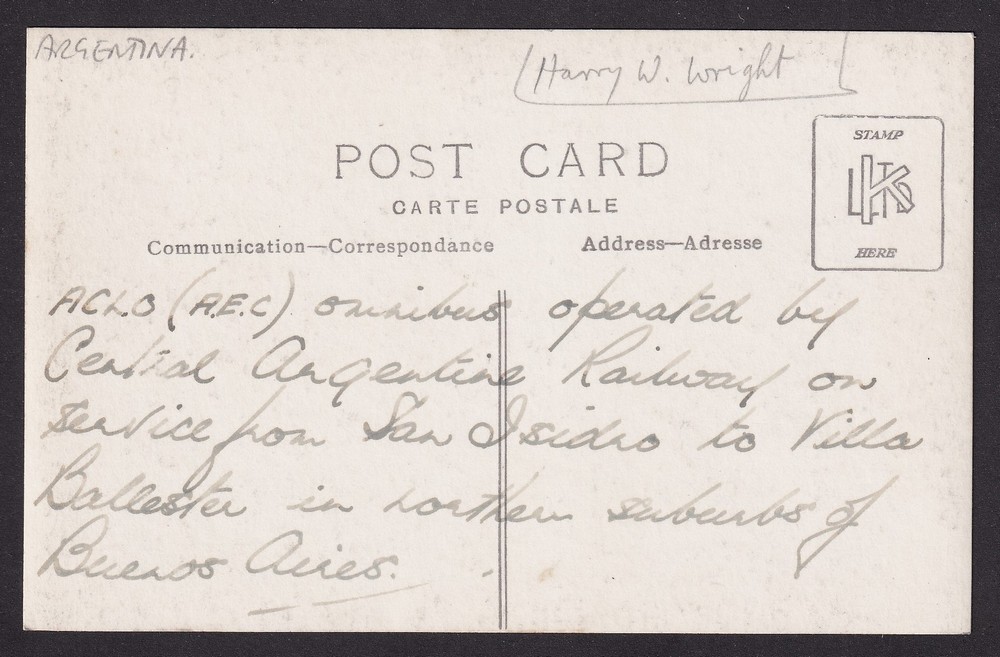 ARGENTINA.
Harry W. Wright
POST CARD
CARTE POSTALE
Communication—Correspondance
Address—Adresse
STAMP
HERE
ACLO (A.E.C) omnibus operated by
Central Argentine Railway on
service from San Isidro to Villa
Ballester in northern suburbs of
Buenos Aires.